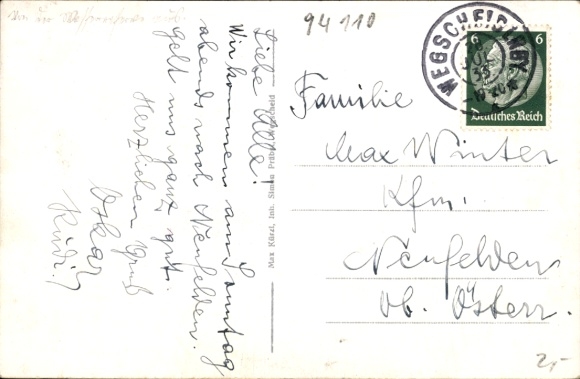 94110
Liebe Alle!
Wir kommen am Sonntag
abends nach Neufelden.
geht uns ganz gut.
Herzlichen Gruß
Oskar
Max Kürzl, Inh. Simon Wegscheid
WEGSCHEID NDBY
6 6
Deutsches Reich
Familie
Max Winter
Kfm.
Neufelden
Ob. Österr.
2,-